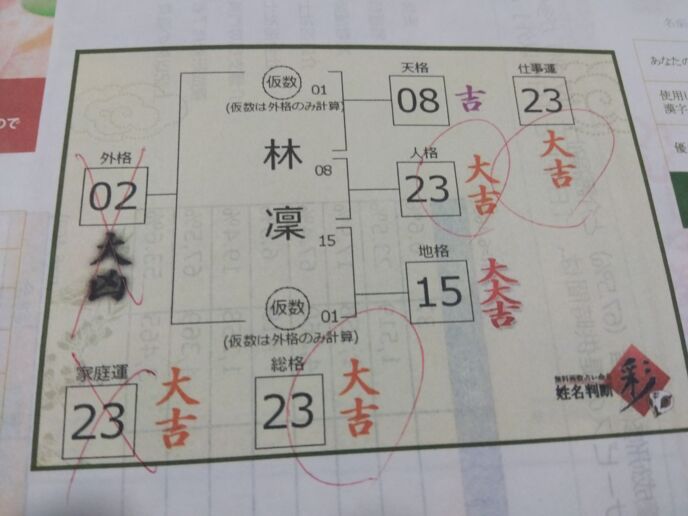 天格
仕事運
仮数
01
08
吉
23
大吉
(仮数は外格のみ計算)
外格
02
大凶
林
08
人格
23
大吉
凜
15
地格
15
大大吉
仮数
01
(仮数は外格のみ計算)
家庭運
23
大吉
総格
23
大吉
姓名判断
彩
つで
あなたの
使用し
漢字
優